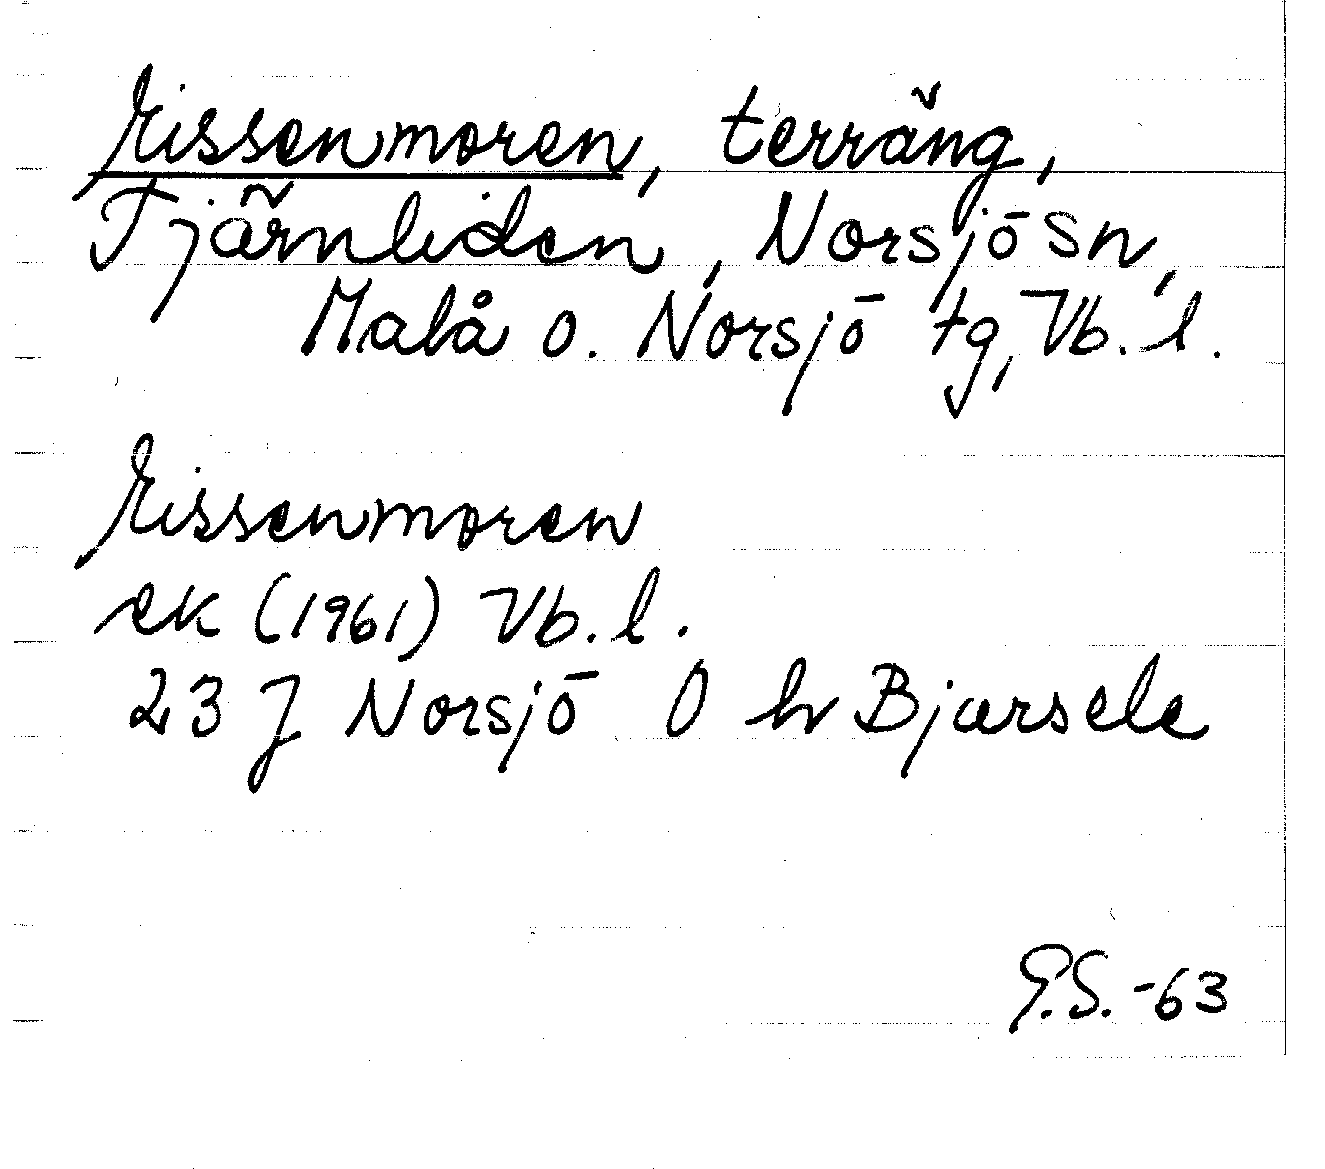 terräng,
Tjärnliden, Norsjö sn,
Malå o. Norsjö tg, Vb. l.
ek (1961) Vb. l.
23 J Norsjö O h Bjursele
G.S. -63